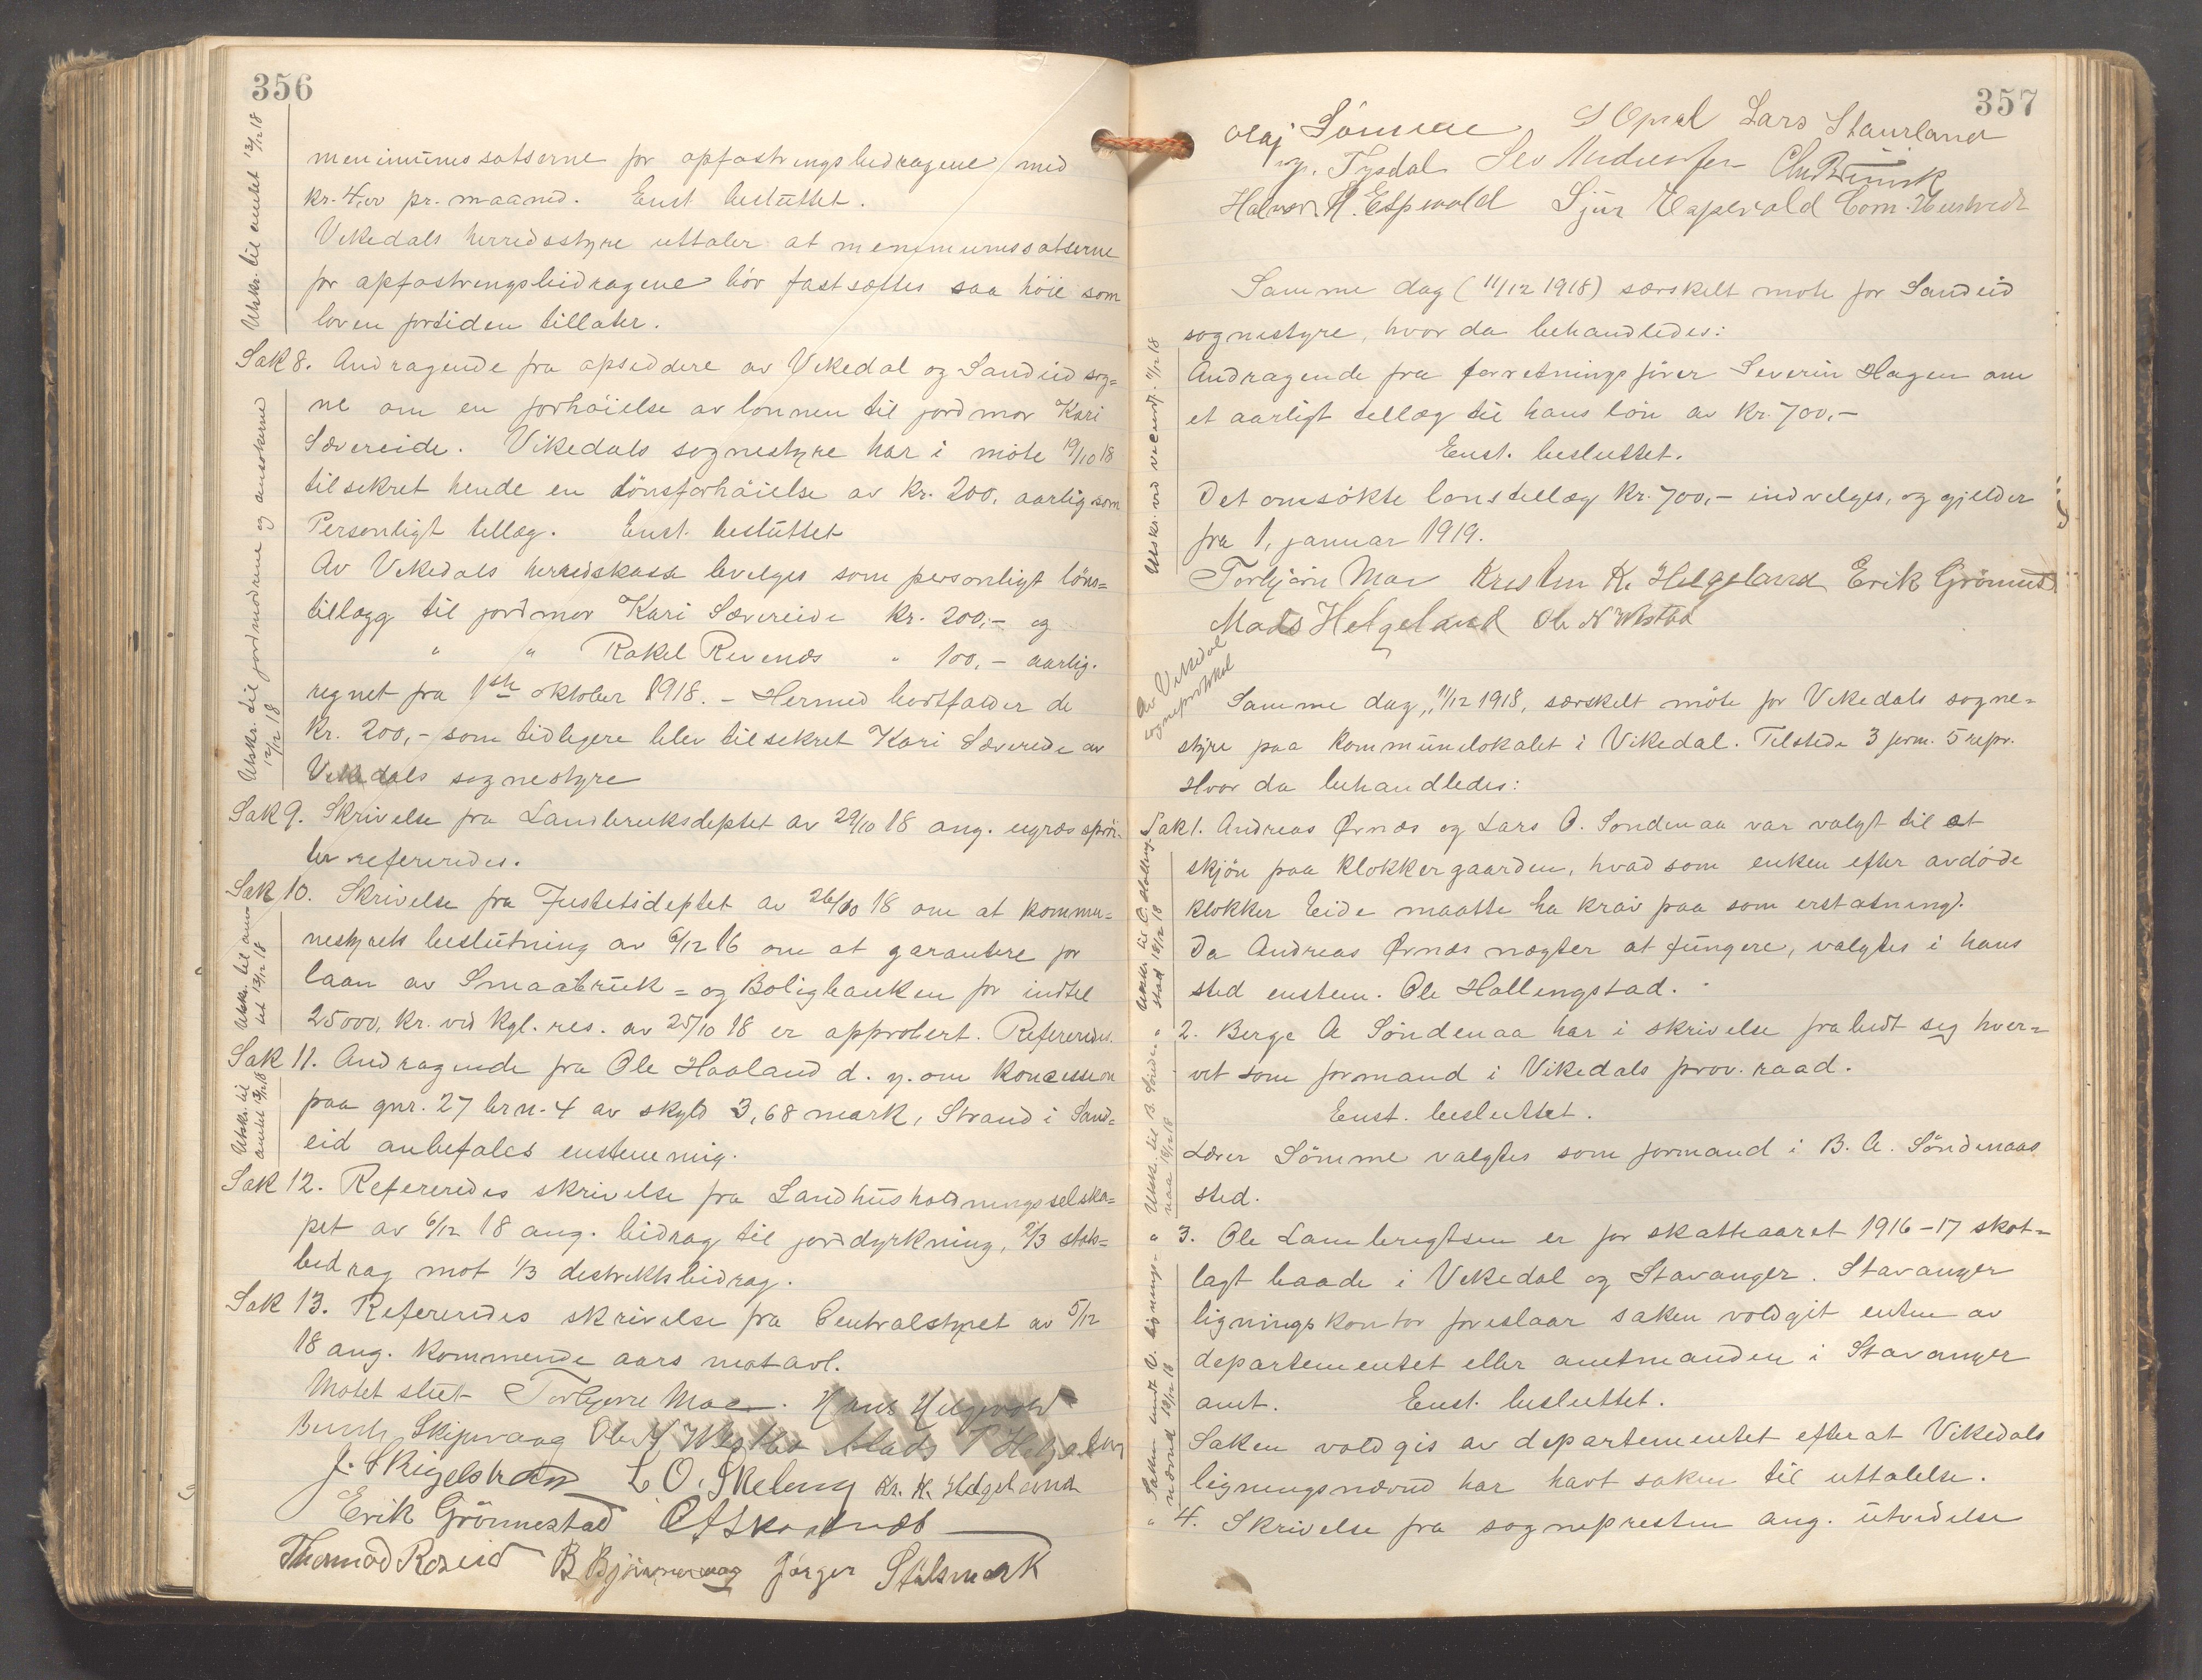 356
Utskr. til amtet 13/12 18
menimumssatserne for opfostringsbidragene med
kr. 4,00 pr. maaned. Enst besluttet.
Vikedals herredsstyre uttaler at menimumssatserne
for opfostringsbidragene bör fastsættes saa höie som
loven fortiden tillater.
Sak 8. Andragende fra opsiddere av Vikedal og Sandeid sog=
ne om en forhöielse av lönnen til jordmor Kari
Sævereide. Vikedals sognestyre har i möte 19/10 18
tilsekret hende en lönsforhöielse av kr. 200, aarlig som
Personligt tillæg. Enst. besluttet
Av Vikedals herredskasse bevilges som personligt löns=
tillægg til jordmor Kari Sævereide kr. 200,- og
" " Rakel Revenæs " 100,- aarlig.
regnet fra 1ste oktober 1918. - Hermed bortfalder de
kr. 200,- som tidligere blev tilsekret Kari Sævereide av
Vikedals sognestyre
Utskr. til jordmödrene og ansökerne
12/12 18
Sak 9. Skrivelse fra Landbruksdeptet av 29/10 18 ang. ugræsspröi-
ter refereredes.
Sak 10. Skrivelse fra Justetsdeptet av 26/10 18 om at kommu=
nestyrets beslutning av 6/12 16 om at garantere for
laan av Smaabruk= og Boligbanken for indtil
25000, kr. ved kgl. res. av 25/10 18 er approbert. Refereredes.
Utskr. til amtet 13/12 18
Sak 11. Andragende fra Ole Haaland d. y. om koncession
paa gnr. 27 brn. 4 av skyld 3,68 mark, Strand i Sand=
eid anbefales enstemmig.
Utskr. til amtet 13/12 18
Sak 12. Refereredes skrivelse fra Landhusholdningsselska=
pet av 6/12 18 ang. bidrag til jorddyrkning, 2/3 stats=
bedrag mot 1/3 destriktsbidrag.
Sak 13. Refereredes skrivelse fra Centralstyret av 5/12
18 ang. kommende aars matavl.
Mötet slut Torbjörn Moe.
Skipevaag Ole N Westbö Mads Helgeland
J. Skigelstrand L O. Skeleng Kr. K. Helgeland
Erik Grönnestad
Thormod Roseid B Björnevaag Jörger Stulsmark
357
Olaf Sömme S Opsal Lars Staurland
Tysdal Sev Andersen Chr
Halvor H. Espevold Sjur Espevold Corn.
Samme dag (11/12 1918) særskelt möte for Sandeid
sognestyre, hvor da behandledes:
Andragende fra forretningsförer Severin Hagen om
et aarligt tellæg til hans lön av kr. 700,-
Enst. besluttet.
Det omsökte lönstellæg kr. 700,- indvelges, og gjelder
fra 1. januar 1919.
Torbjörn Moe Kresten K. Helgeland Erik Grönnest
Mads Helgeland Ole N Westbö
Av Vikedal
sogneprotokol
Samme dag, 11/12 1918, særskelt möte for Vikedals sogne=
styre paa kommunelokalet i Vikedal. Tilstede 3 form. 5 repr.
Hvor da behandledes:
Sak 1. Andreas Örnæs og Lars O. Söndenaa var valgt til at
skjön paa klokkergaarden, hvad som enken efter avdöde
klokker Eide maatte ha krav paa som erstatning.
Da Andreas Örnæs nægter at fungere, valgtes i hans
sted enstem. Ole Hallengstad.
" 2. Berge A Söndenaa har i skrivelse frabedt seg hver=
vet som formand i Vikedals prov. raad.
Enst. besluttet.
Lærer Sömme valgtes som formand i B. A. Söndenaas
sted.
" 3. Ole Lambregtsen er for skatteaaret 1916-17 skat=
lagt baade i Vikedal og Stavanger. Stavanger
ligningskontor foreslaar saken voldgit enten av
departementet eller amtmanden i Stavanger
amt. Enst. besluttet.
Saken voldgis av departementet efter at Vikedals
ligningsnævnd har havt saken til uttalelse.
" 4. Skrivelse fra sognepresten ang. utvidelse